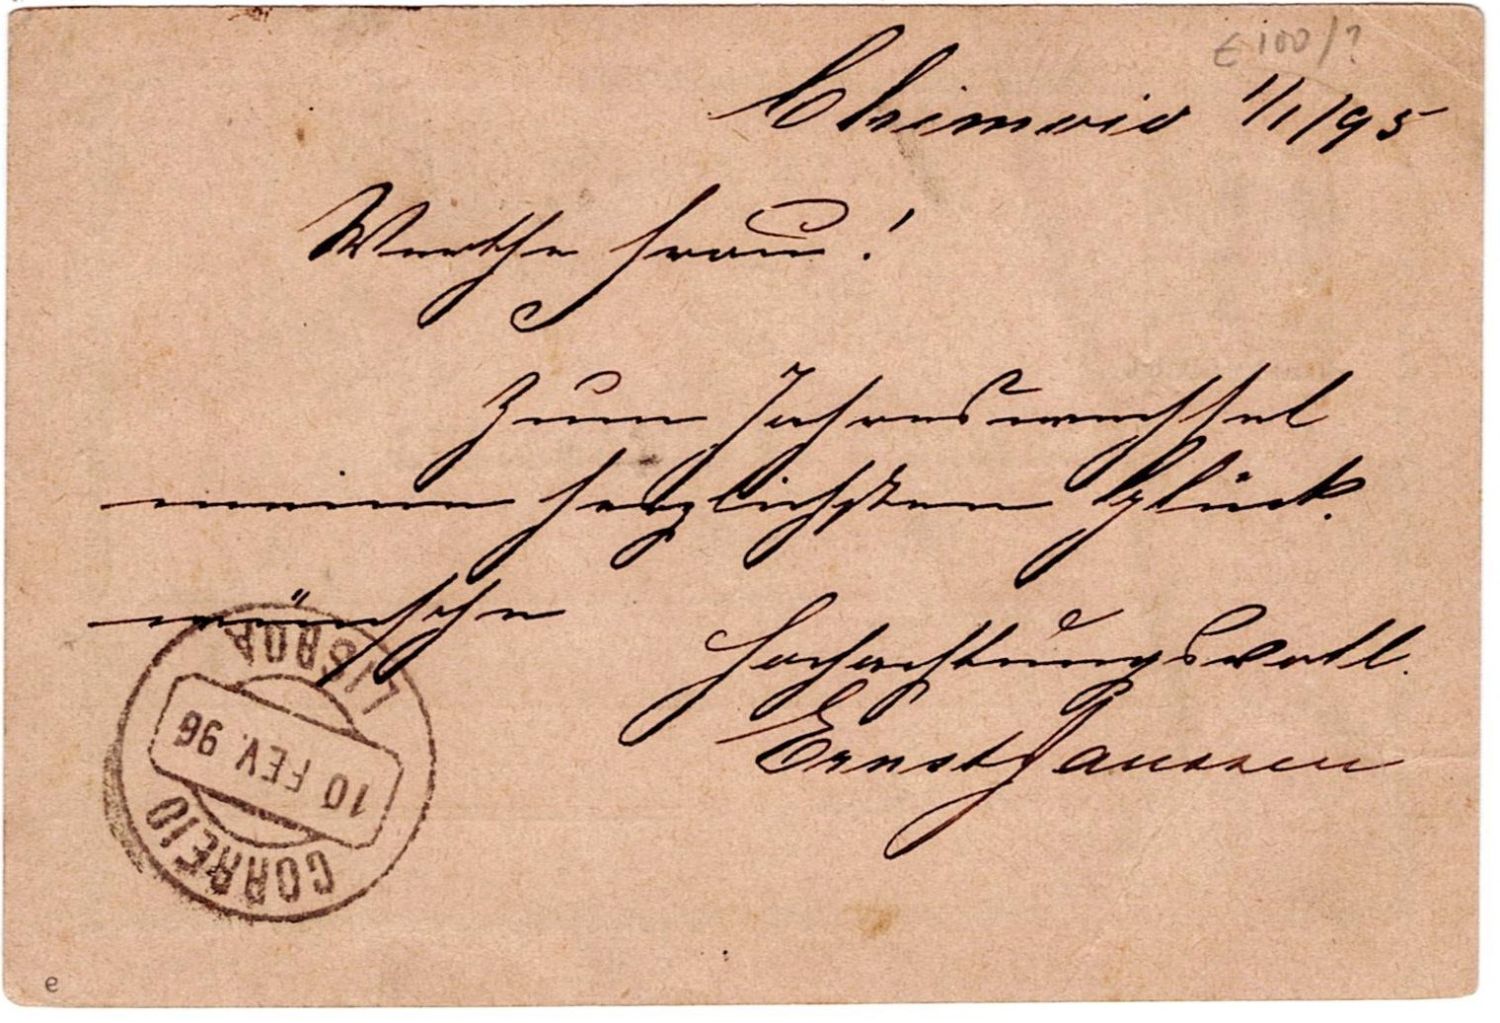 £ 100/?
Chimoio 1/1/95
Werthe Frau!
Zum Jahreswechsel
meine herzlichsten Glück.
wünsche
Hochachtungsvoll.
Ernst Janssen
LISBOA
10 FEV. 96
CORREIO
e